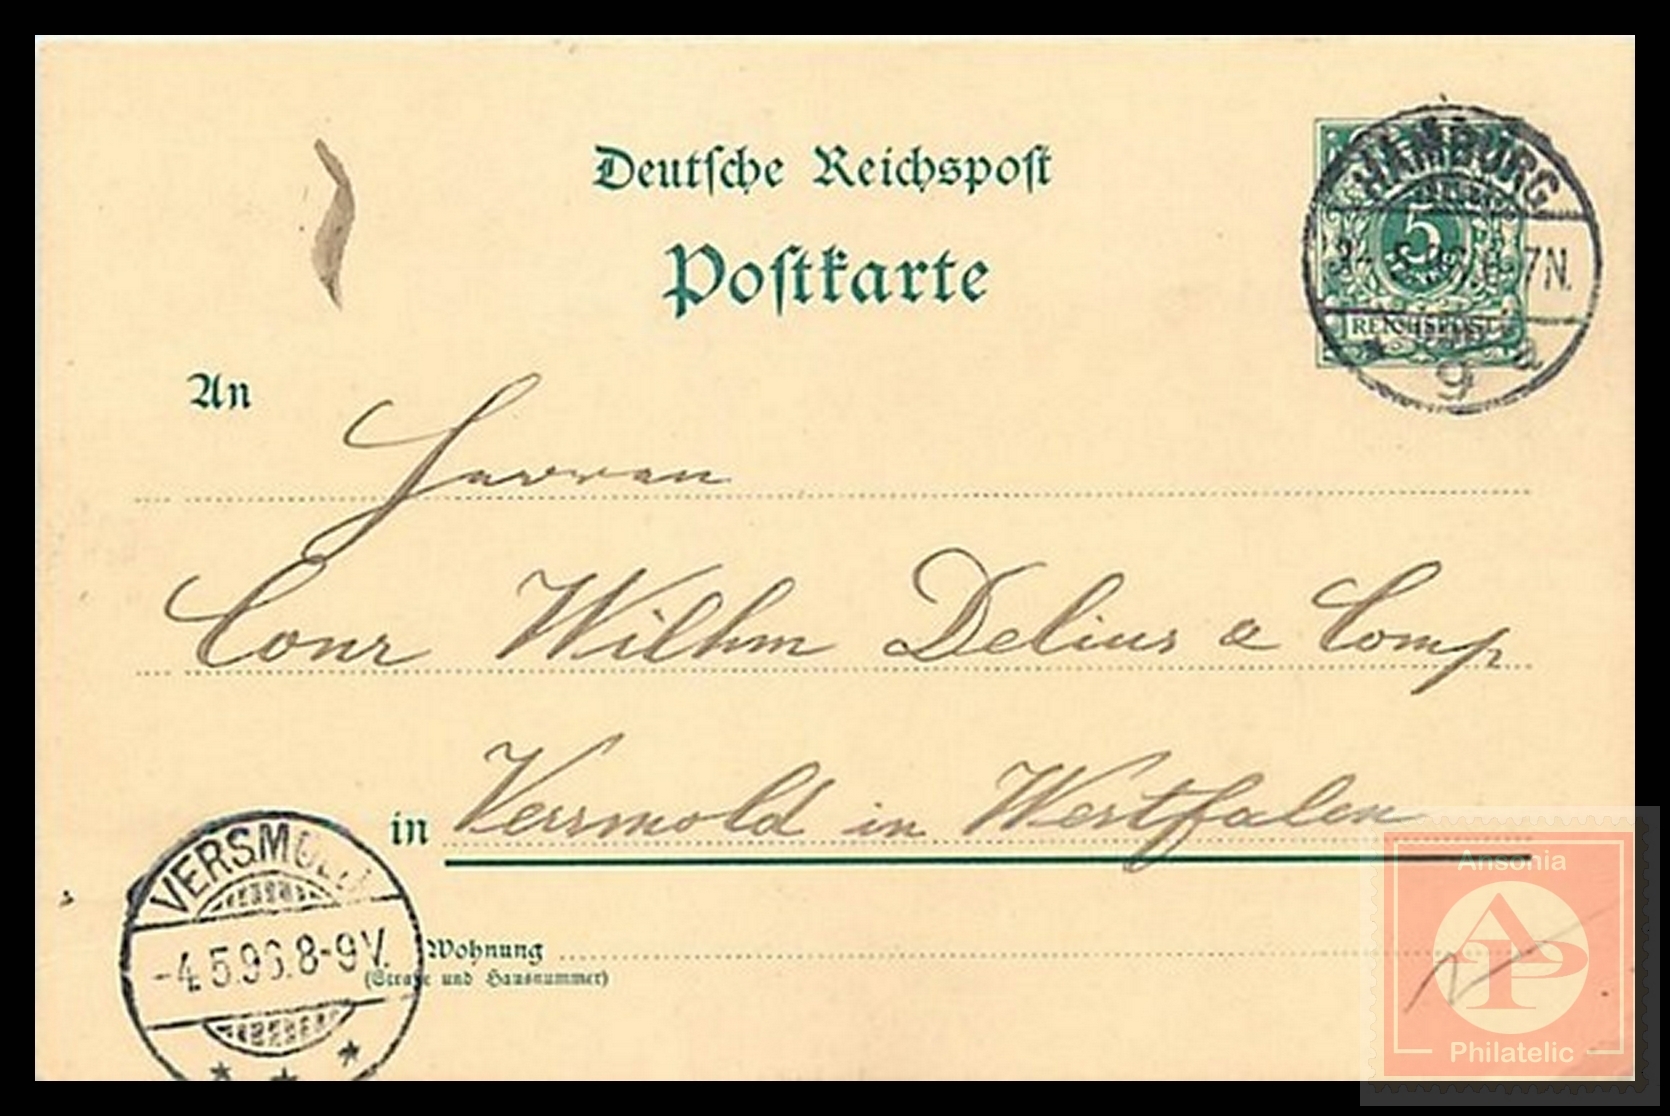 Deutſche Reichspoſt
Poſtkarte
HAMBURG
5
7N.
REICHSPOST
9 a
An
Herren
Conr Wilhm Delius & Comp
in Versmold in Westfalen
VERSMOLD
-4.5.96.8-9V.
Wohnung
(Straße und Hausnummer)
Ansonia
AP
Philatelic